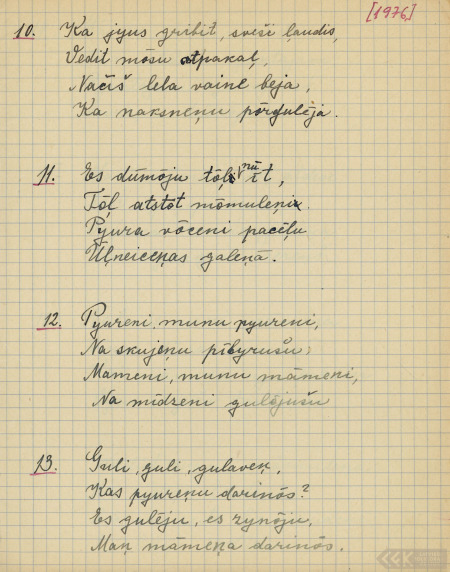 [1976,]
10. Ka jyus gribit, sveši ļaudis,
Vedit mōsu atpakaļ,
Načiš lela vaine beja,
Ka naksneņu pōrgulēja.
11. Es dūmōju tōļi nu īt,
Tōļ atstōt mōmuleņi.
Pyura vōceni pacēļu
Ūļneiceņas galeņā.
12. Pyureni, munu pyureni,
Na skujeņu pībyrušu;
Mameni, munu māmeni,
Na mīdzeni gulōjušu
13. Guli, guli, gulaveņ,
Kas pyureņu darinōs?
Es gulēju, es zynōju,
Maņ māmeņa darinōs.